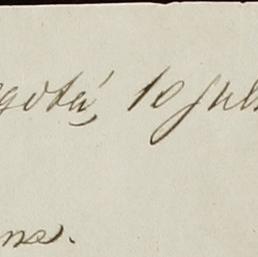 gotá, 10 Jul
ms.